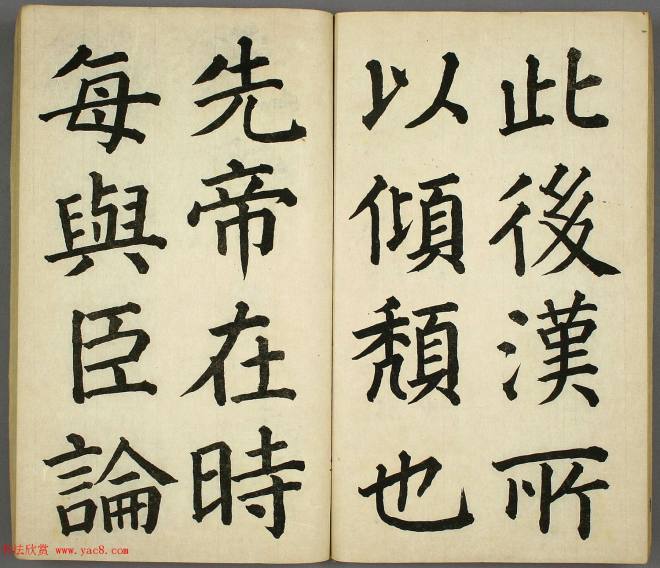 此後漢所
以傾頹也
先帝在時
每與臣論
法欣赏 www.yac8.com